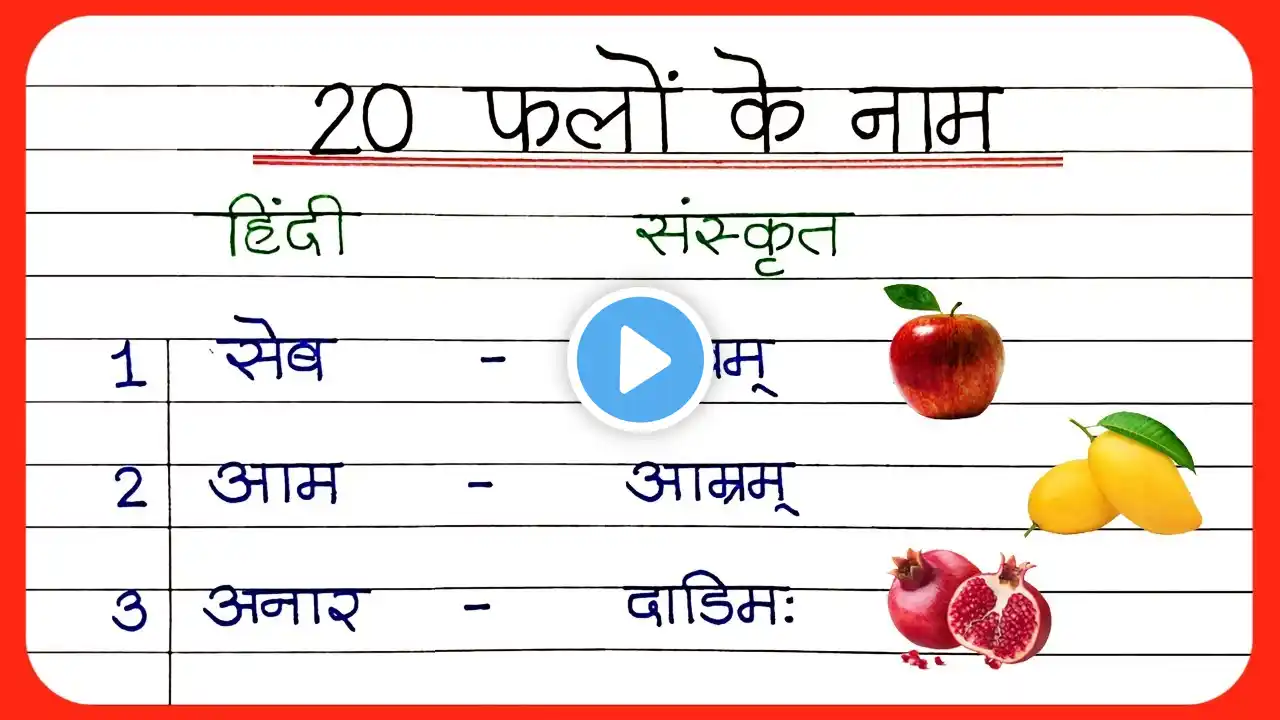 20 फलों के नाम
हिंदी संस्कृत
1 सेब -
2 आम - आम्रम्
3 अनार - दाडिमः